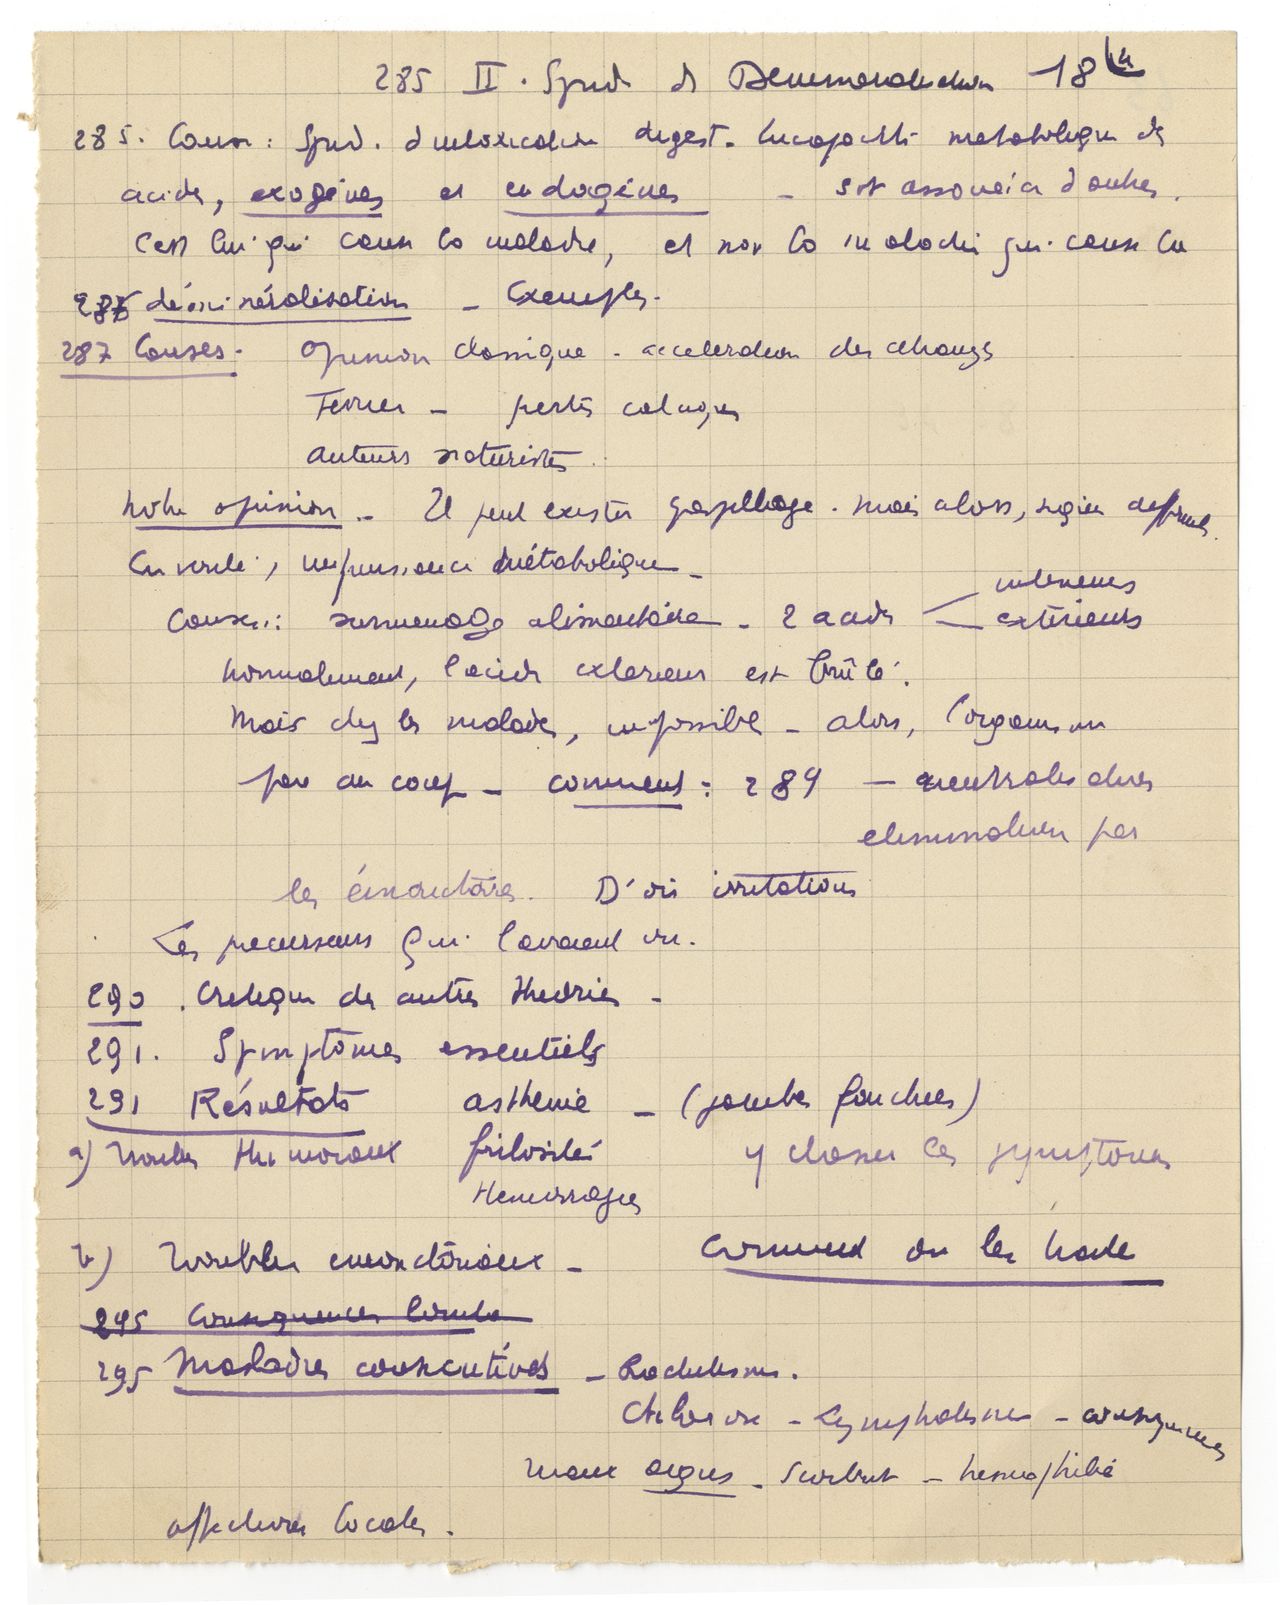 285 II. Synd. de Déminéralisation 18
285. Cause : Synd. d'intoxication digest. Incapacité métabolique des
acides, exogènes et endogènes - est associé à d'autres.
C'est lui qui cause la maladie, et non la maladie qui cause la
286 déminéralisation - Exemples.
287 Causes. Opinion classique - accélération des échanges
Ferrier - pertes calciques
auteurs naturistes.
Notre opinion - Il peut exister gaspillage. Mais alors, signes
En vérité, métabolique -
Causes : surmenage alimentaire - 2 acides
intérieurs
extérieurs
Normalement, l'acide extérieur est brûlé.
Mais chez les malades, impossible - alors, l'organisme
pare au coup - comment : 289 - neutralisation
élimination par
les émonctoires. D'où irritations
Les précurseurs qui l'avaient vu.
290. Critique des autres théories -
291. Symptômes essentiels
291 Résultats asthénie - (jambes fauchées)
a) troubles humoraux frilosité y classer les symptômes
Hémorragies
b) Troubles émonctoriaux - Comment on les traite
295 Conséquences
295 Maladies consécutives - Rachitisme.
Chlorose - Lymphatisme - conséquences
Maux aigus - Scorbut - hémophilie
affections locales.